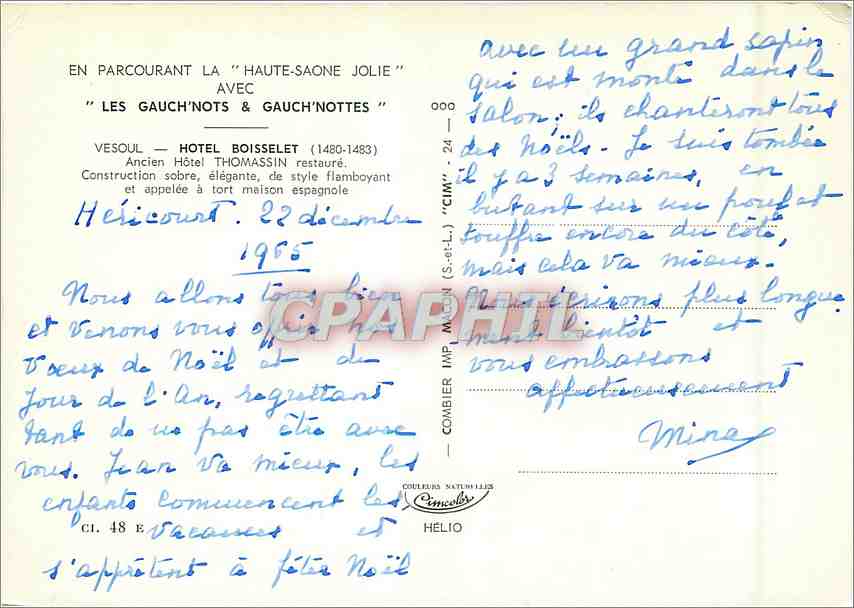 EN PARCOURANT LA " HAUTE-SAONE JOLIE "
AVEC
" LES GAUCH'NOTS & GAUCH'NOTTES "
VESOUL — HOTEL BOISSELET (1480-1483)
Ancien Hôtel THOMASSIN restauré.
Construction sobre, élégante, de style flamboyant
et appelée à tort maison espagnole
Héricourt. 22 décembre
1965
Nous allons tous bien
et venons vous offrir nos
vœux de Noël et du
Jour de l'An, regrettant
tant de ne pas être avec
vous. Jean va mieux, les
enfants commencent les
vacances et
s'apprêtent à fêter Noël
CI. 48 E
avec un grand sapin
qui est monté dans le
salon; ils chanteront tous
des Noëls. Je suis tombée
il y a 3 semaines, en
butant sur un pouf et
souffre encore du côté,
mais cela va mieux.
Nous écrirons plus longue
ment bientôt et
vous embrassons
affectueusement
Mina
— COMBIER IMP. MACON (S.-et-L.) "CIM" - 24 — 000
COULEURS NATURELLES
Cimcolor
HÉLIO
CPAPHIL